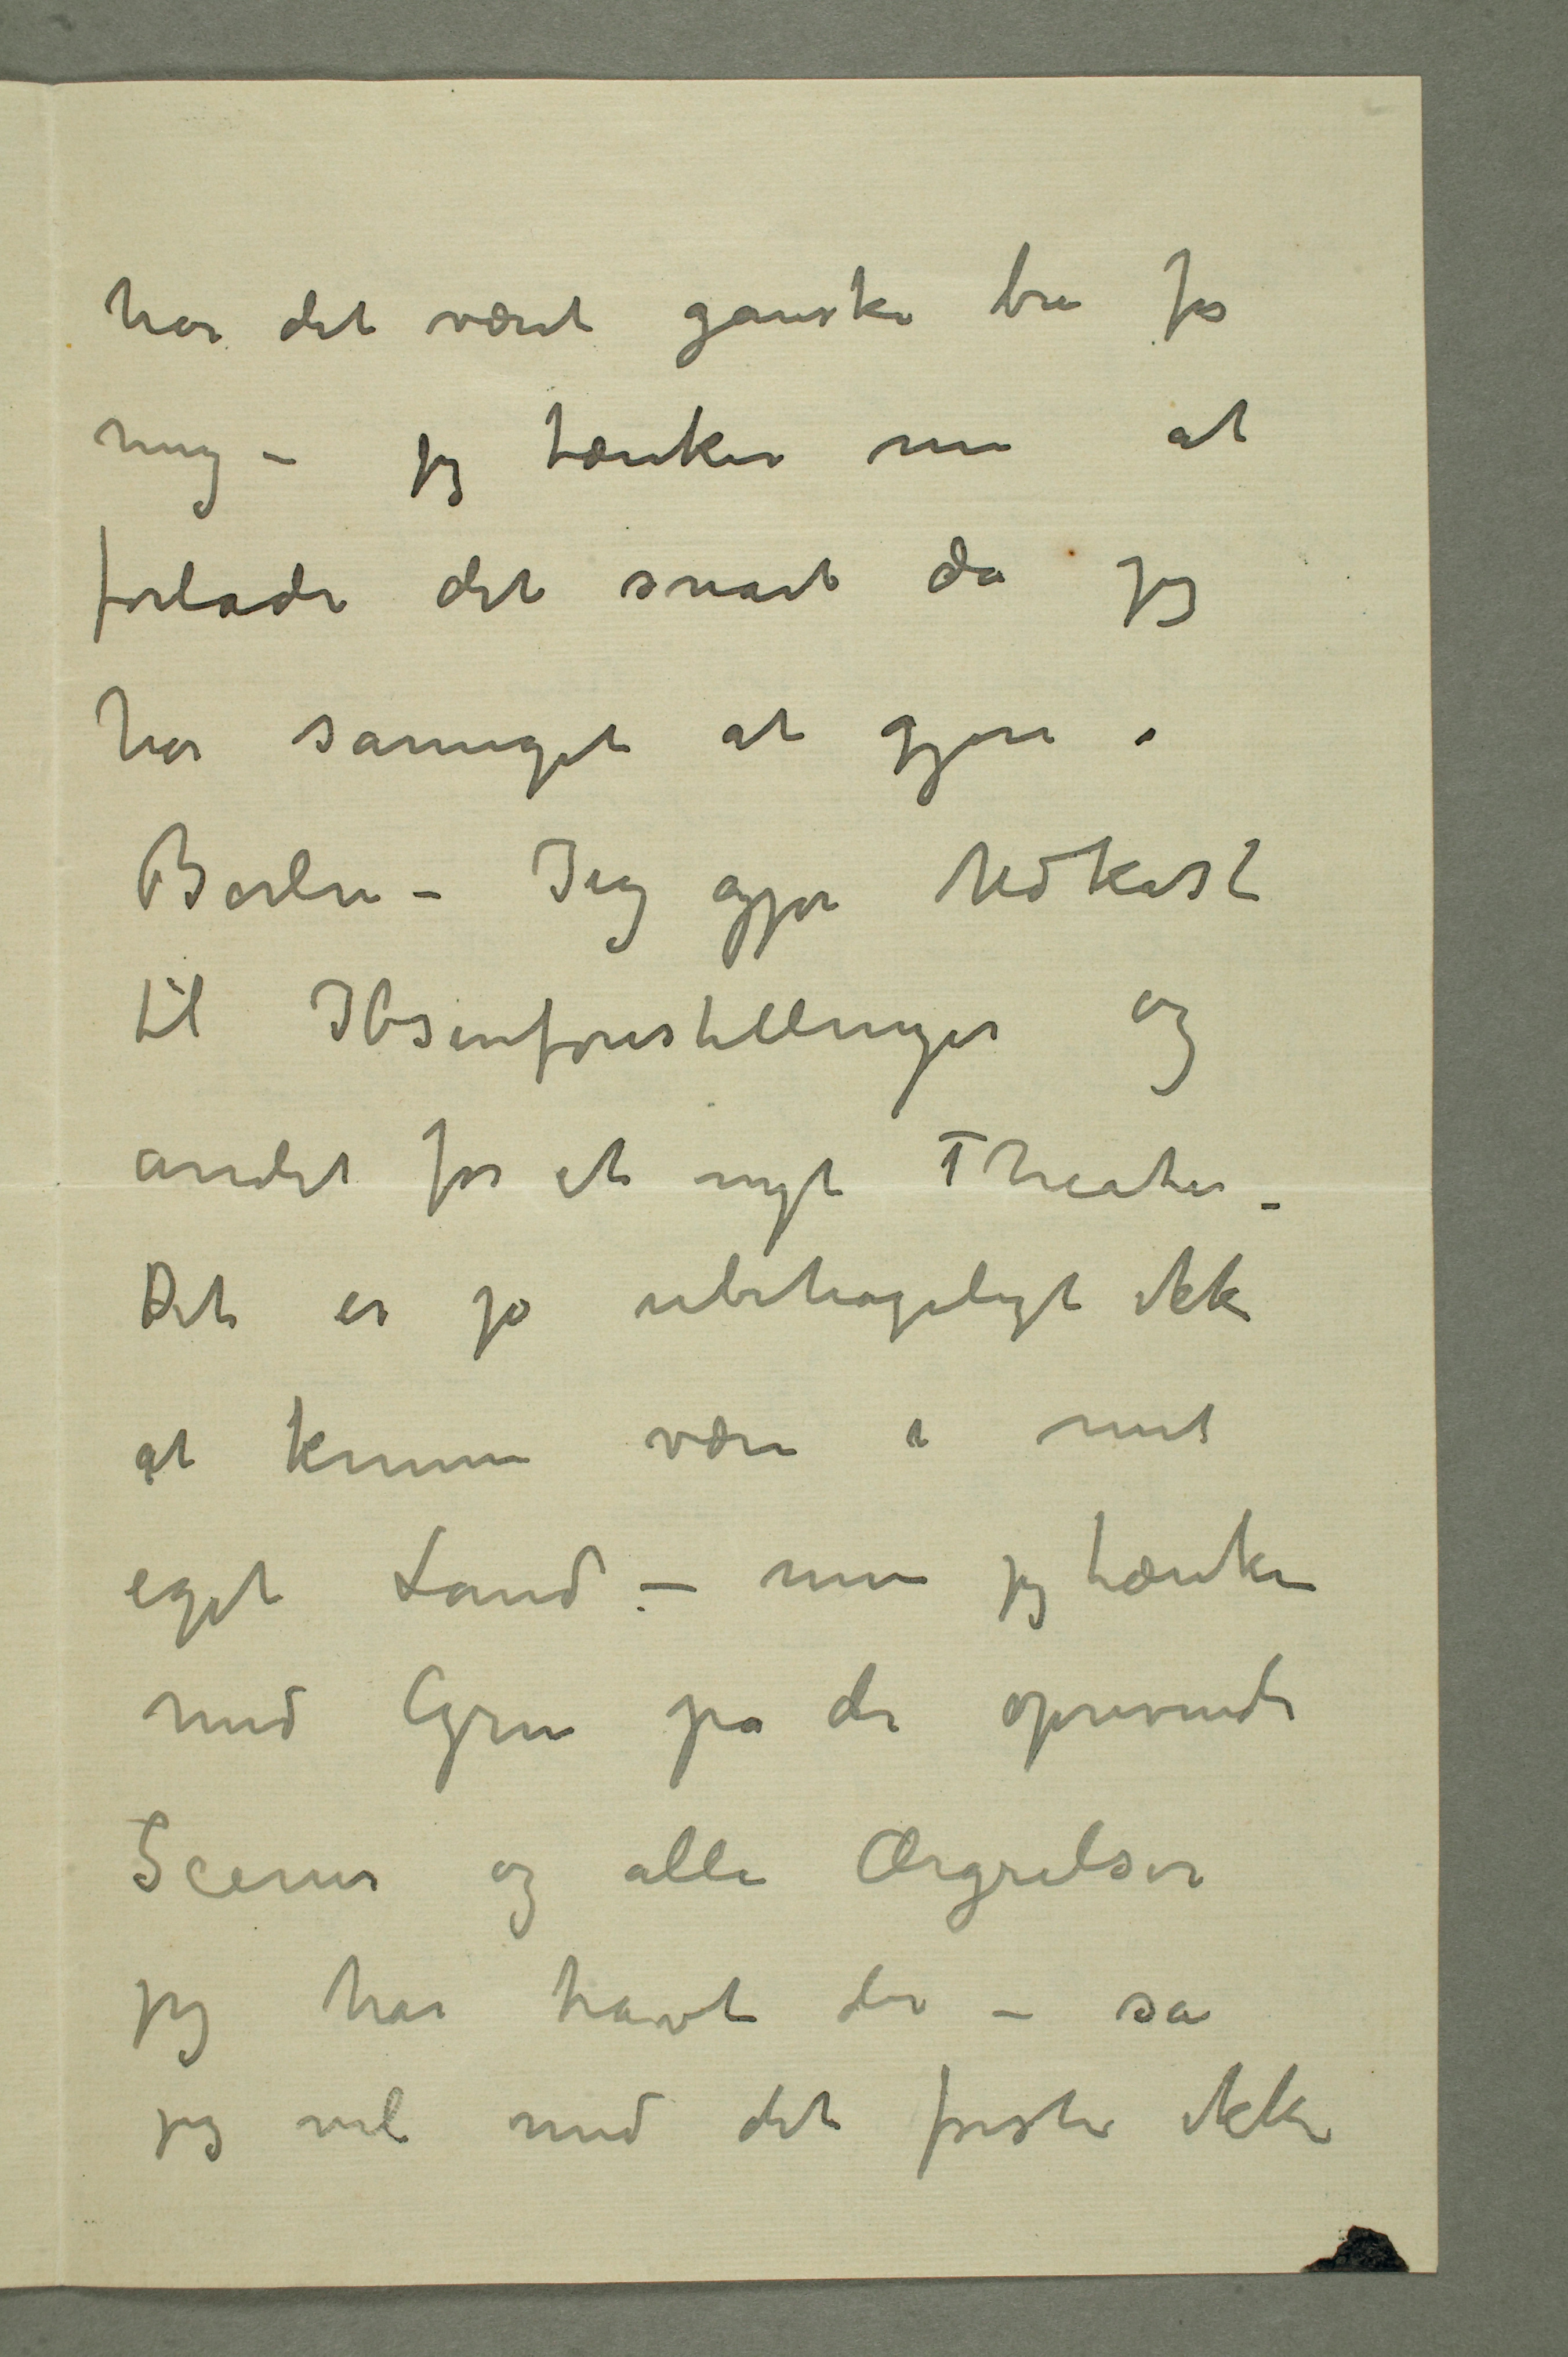 har det været ganske bra for
mig – jeg tænker nu at
forlade det snart da jeg
har såmeget at gjøre i
Berlin – Jeg gjør Udkast
til Ibsenforestillinger og
andet for et nyt Theater –
Det er jo ubehageligt ikke
at kunne være i mit
eget Land – men jeg tænker
med Gru på de oprivende
Scener og alle Ærgrelser
jeg har havt der – så
jeg vil med det første ikke